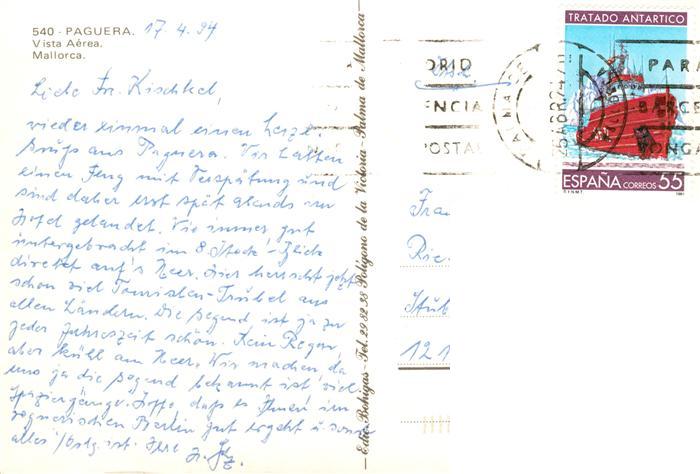 540 - PAGUERA. 17.4.94
Vista Aérea.
Mallorca.
Liebe Fr. Kischkel,
wieder einmal einen herzl.
Gruß aus Paguera. Wir hatten
einen Flug mit Verspätung und
sind daher erst spät abends im
Hotel gelandet. Wie immer gut
untergebracht im 8. Stock - Blick
direkt auf's Meer. Hier herrscht jetzt
schon viel Touristen-Trubel aus
allen Ländern. Die Gegend ist ja zu
jeder Jahreszeit schön. Kein Regen,
aber kühl am Meer. Wir machen, da
uns ja die Gegend bekannt ist, viel
Spaziergänge. Hoffe, daß es Ihnen im
regnerischen Berlin gut ergeht u. sonst
alles i. Ihre
Edic. Bohigas - Tel. 29 82 38 Polígono de la Victoria - Palma de Mallorca
TRATADO ANTARTICO
ESPAÑA CORREOS 55
F.N.M.T. 1991
PALMA DE
25 ABR 24
DRID
ENCIA
POSTA
PARA
BARCE
ZONGA
Frau
Rie
Stub
121